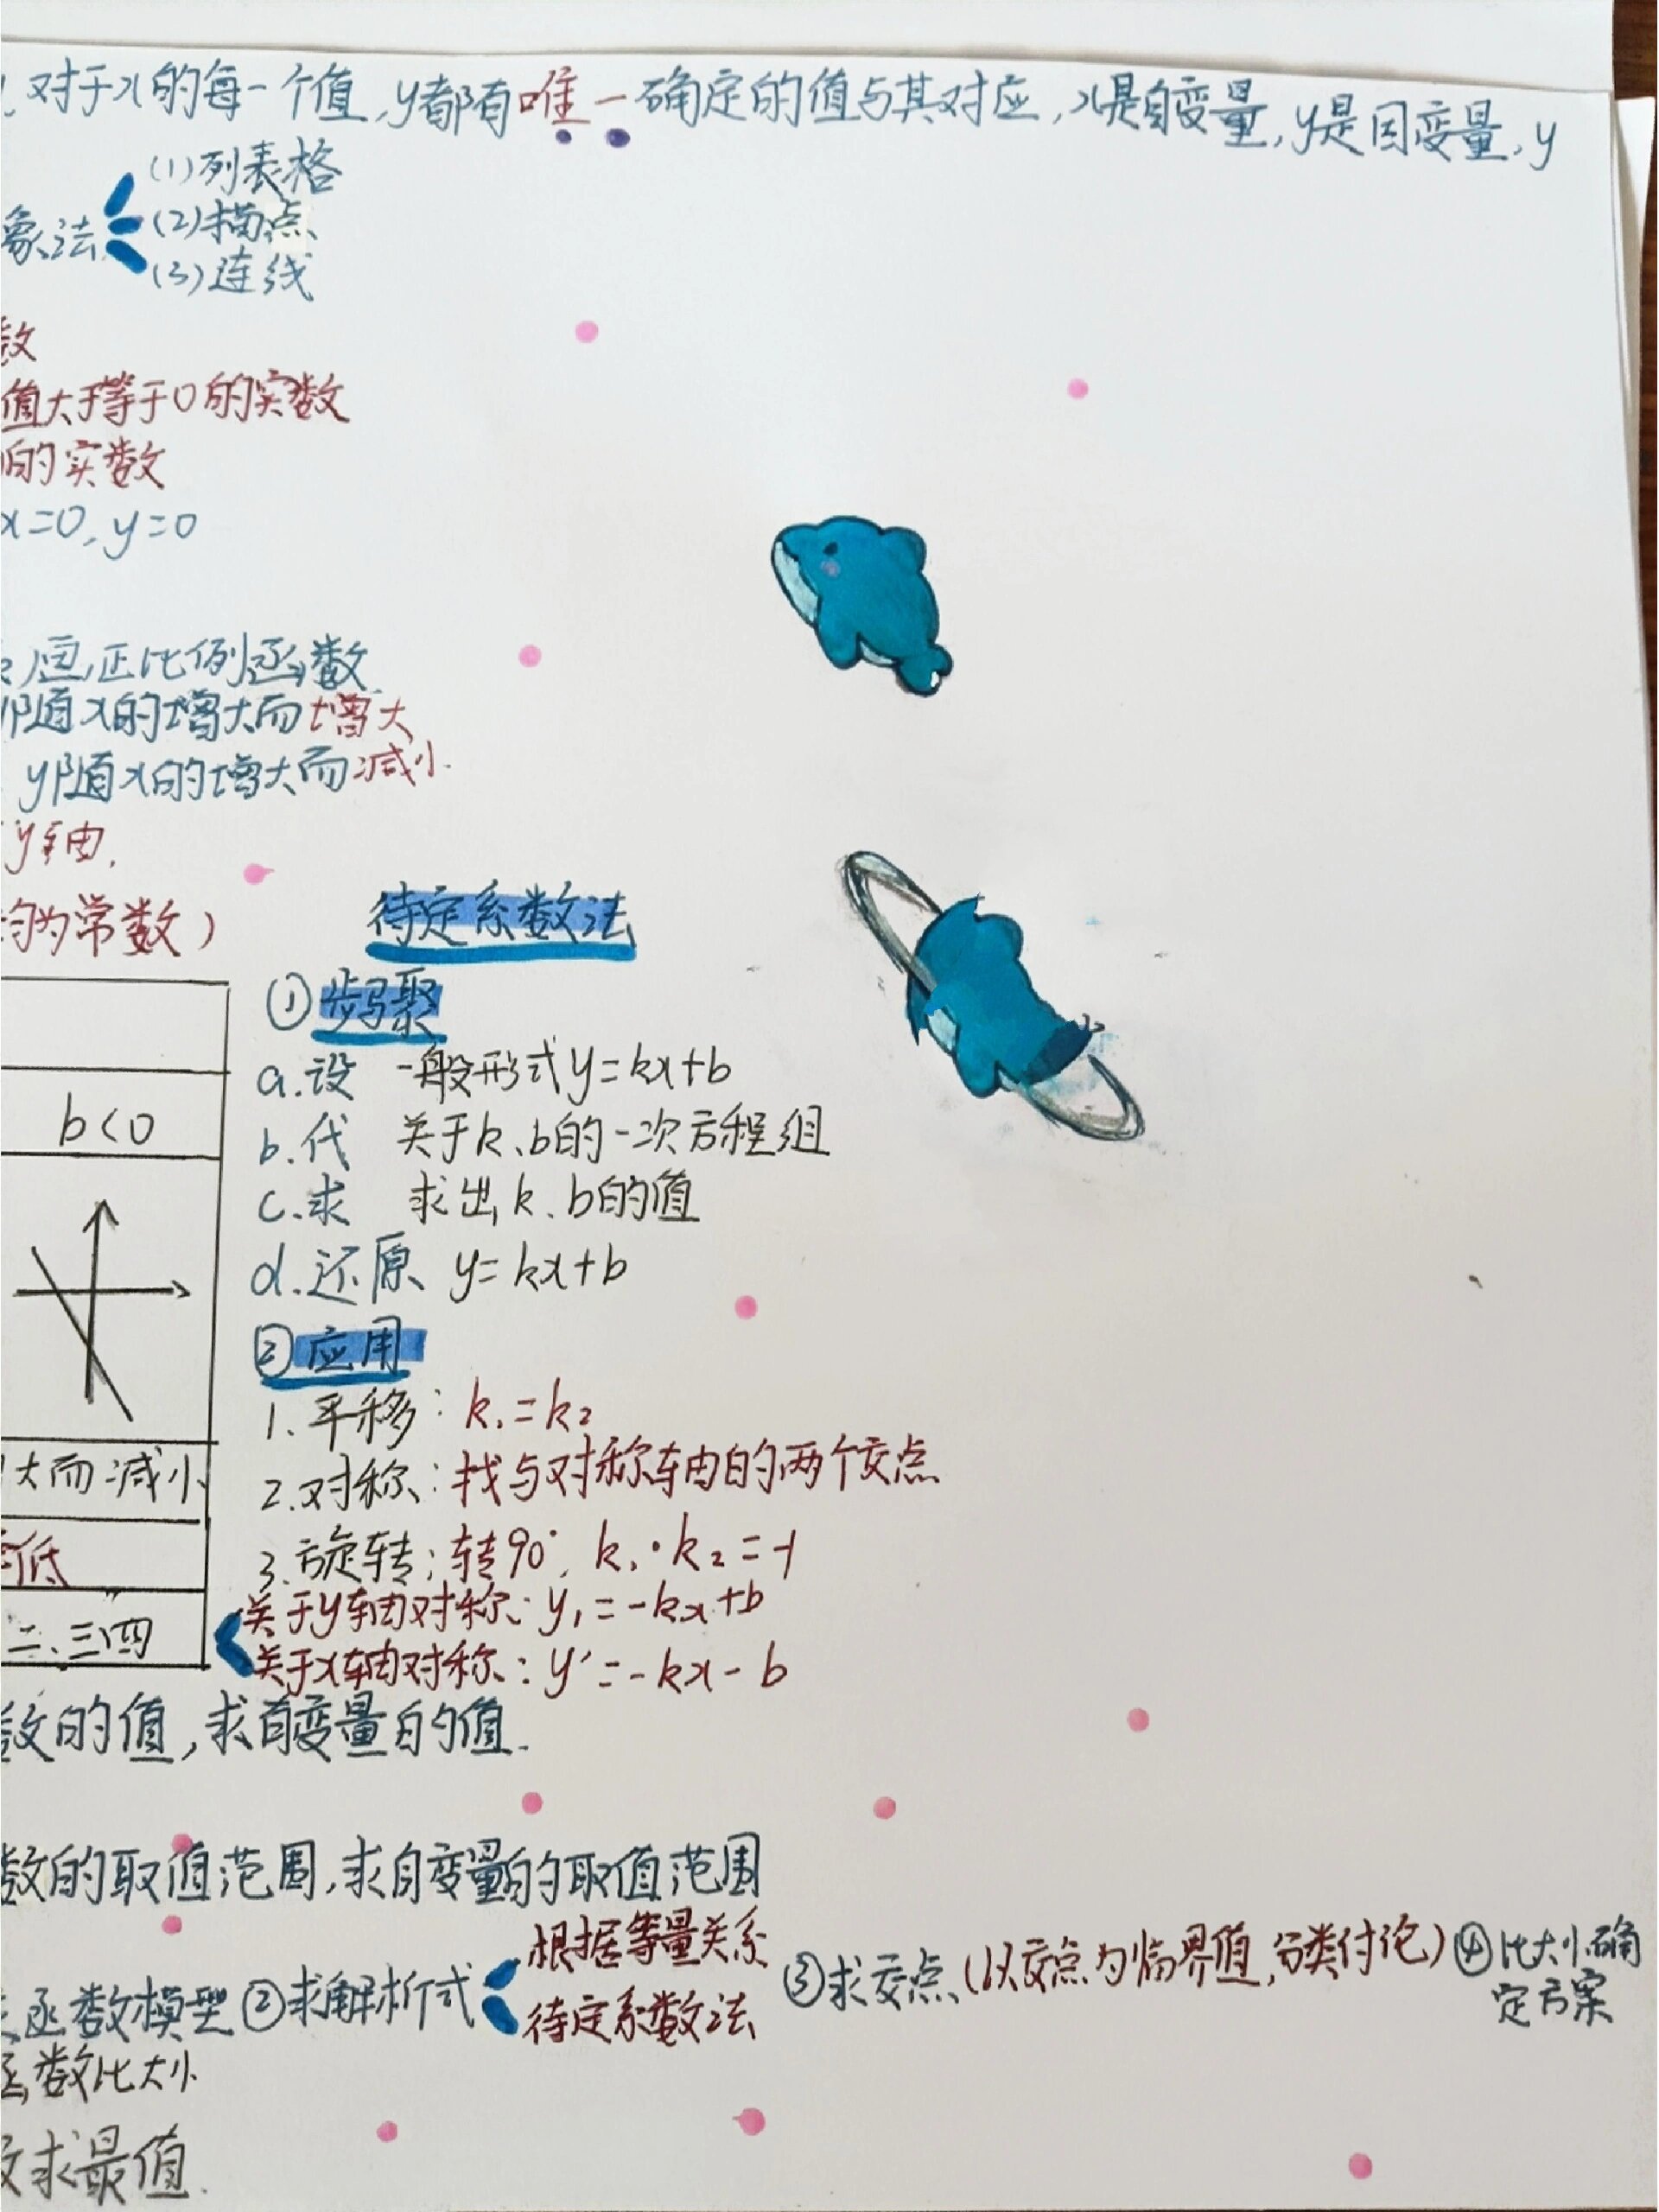 对于x的每一个值,y都有唯一确定的值与其对应,x是自变量,y是因变量,y
象法
(1)列表格
(2)描点
(3)连线
数
值大于等于0的实数
的实数
x=0,y=0
)宜,正比例函数
y随x的增大而增大
y随x的增大而减小.
y轴.
均为常数)
待定系数法
①步骤
a.设 一般形式y=kx+b
b<0
b.代 关于k、b的一次方程组
c.求 求出k、b的值
d.还原 y=kx+b
②应用
1.平移: k₁=k₂
大而减小
2.对称:找与对称轴的两个交点
低
3.旋转:转90°, k₁·k₂=-1
二、三、四
关于y轴对称: y₁=-kx+b
关于x轴对称: y′=-kx-b
数的值,求自变量的值.
数的取值范围,求自变量的取值范围
函数模型 ②求解析式
根据等量关系
待定系数法
③求交点(以交点为临界值,分类付论) ④比大小确
定方案
函数比大小
求最值.